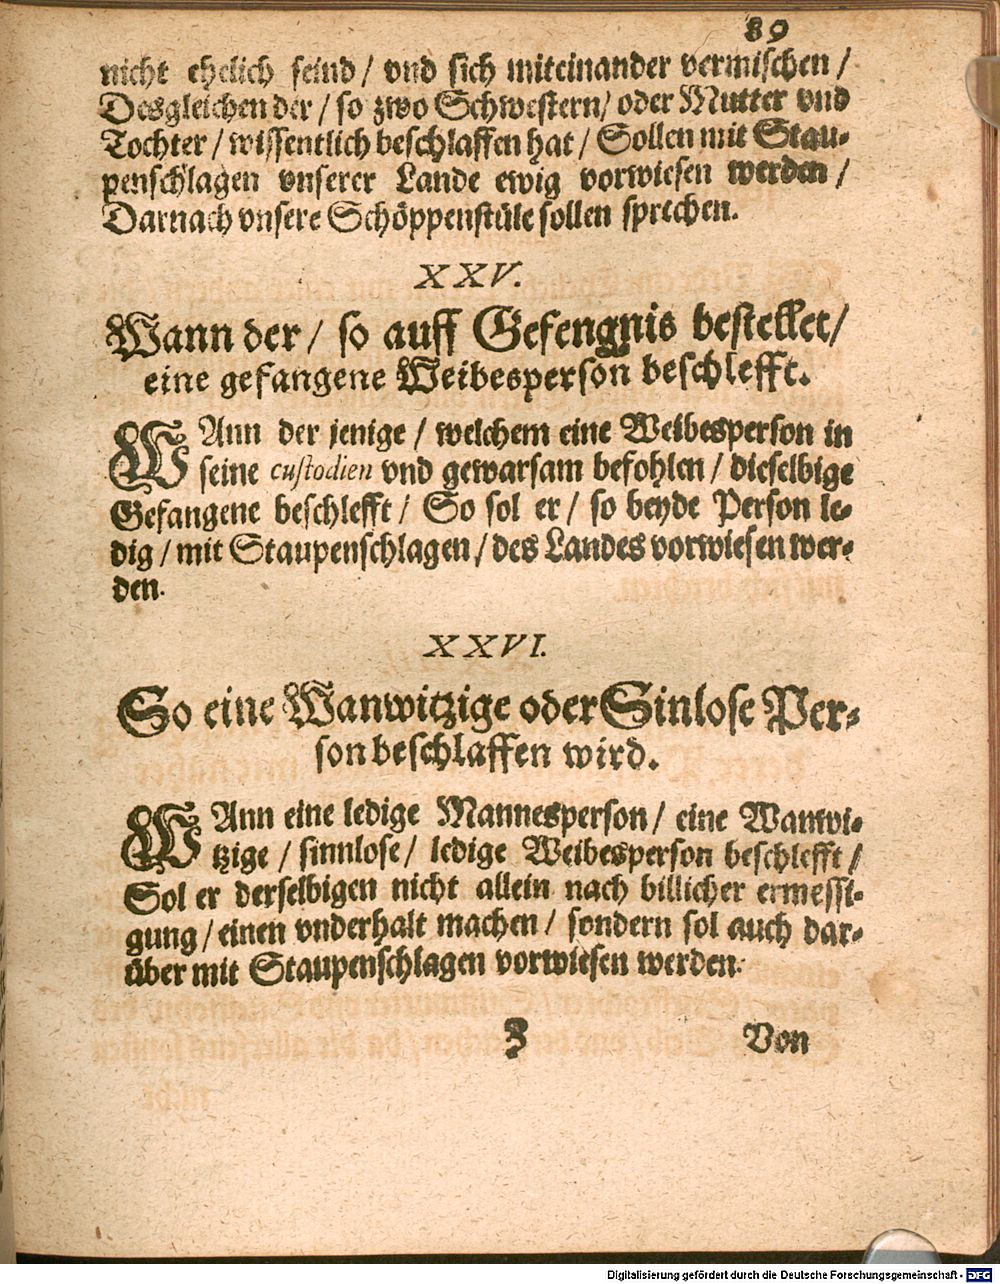 89
nicht ehelich seind / vnd sich miteinander vermischen /
Desgleichen der / so zwo Schwestern / oder Mutter vnd
Tochter / wissentlich beschlaffen hat / Sollen mit Stau-
penschlagen vnserer Lande ewig vorwiesen werden /
Darnach vnsere Schöppenstüle sollen sprechen.
XXV.
Wann der / so auff Gefengnis bestellet /
eine gefangene Weibesperson beschlefft.
WAnn der jenige / welchem eine Weibesperson in
seine custodien vnd gewarsam befohlen / dieselbige
Gefangene beschlefft / So sol er / so beyde Person le-
dig / mit Staupenschlagen / des Landes vorwiesen wer-
den.
XXVI.
So eine Wanwitzige oder Sinlose Per-
son beschlaffen wird.
WAnn eine ledige Mannesperson / eine Wanwi-
tzige / sinnlose / ledige Weibesperson beschlefft /
Sol er derselbigen nicht allein nach billicher ermessi-
gung / einen vnderhalt machen / sondern sol auch dar-
über mit Staupenschlagen vorwiesen werden.
Z
Von
Digitalisierung gefördert durch die Deutsche Forschungsgemeinschaft - DFG